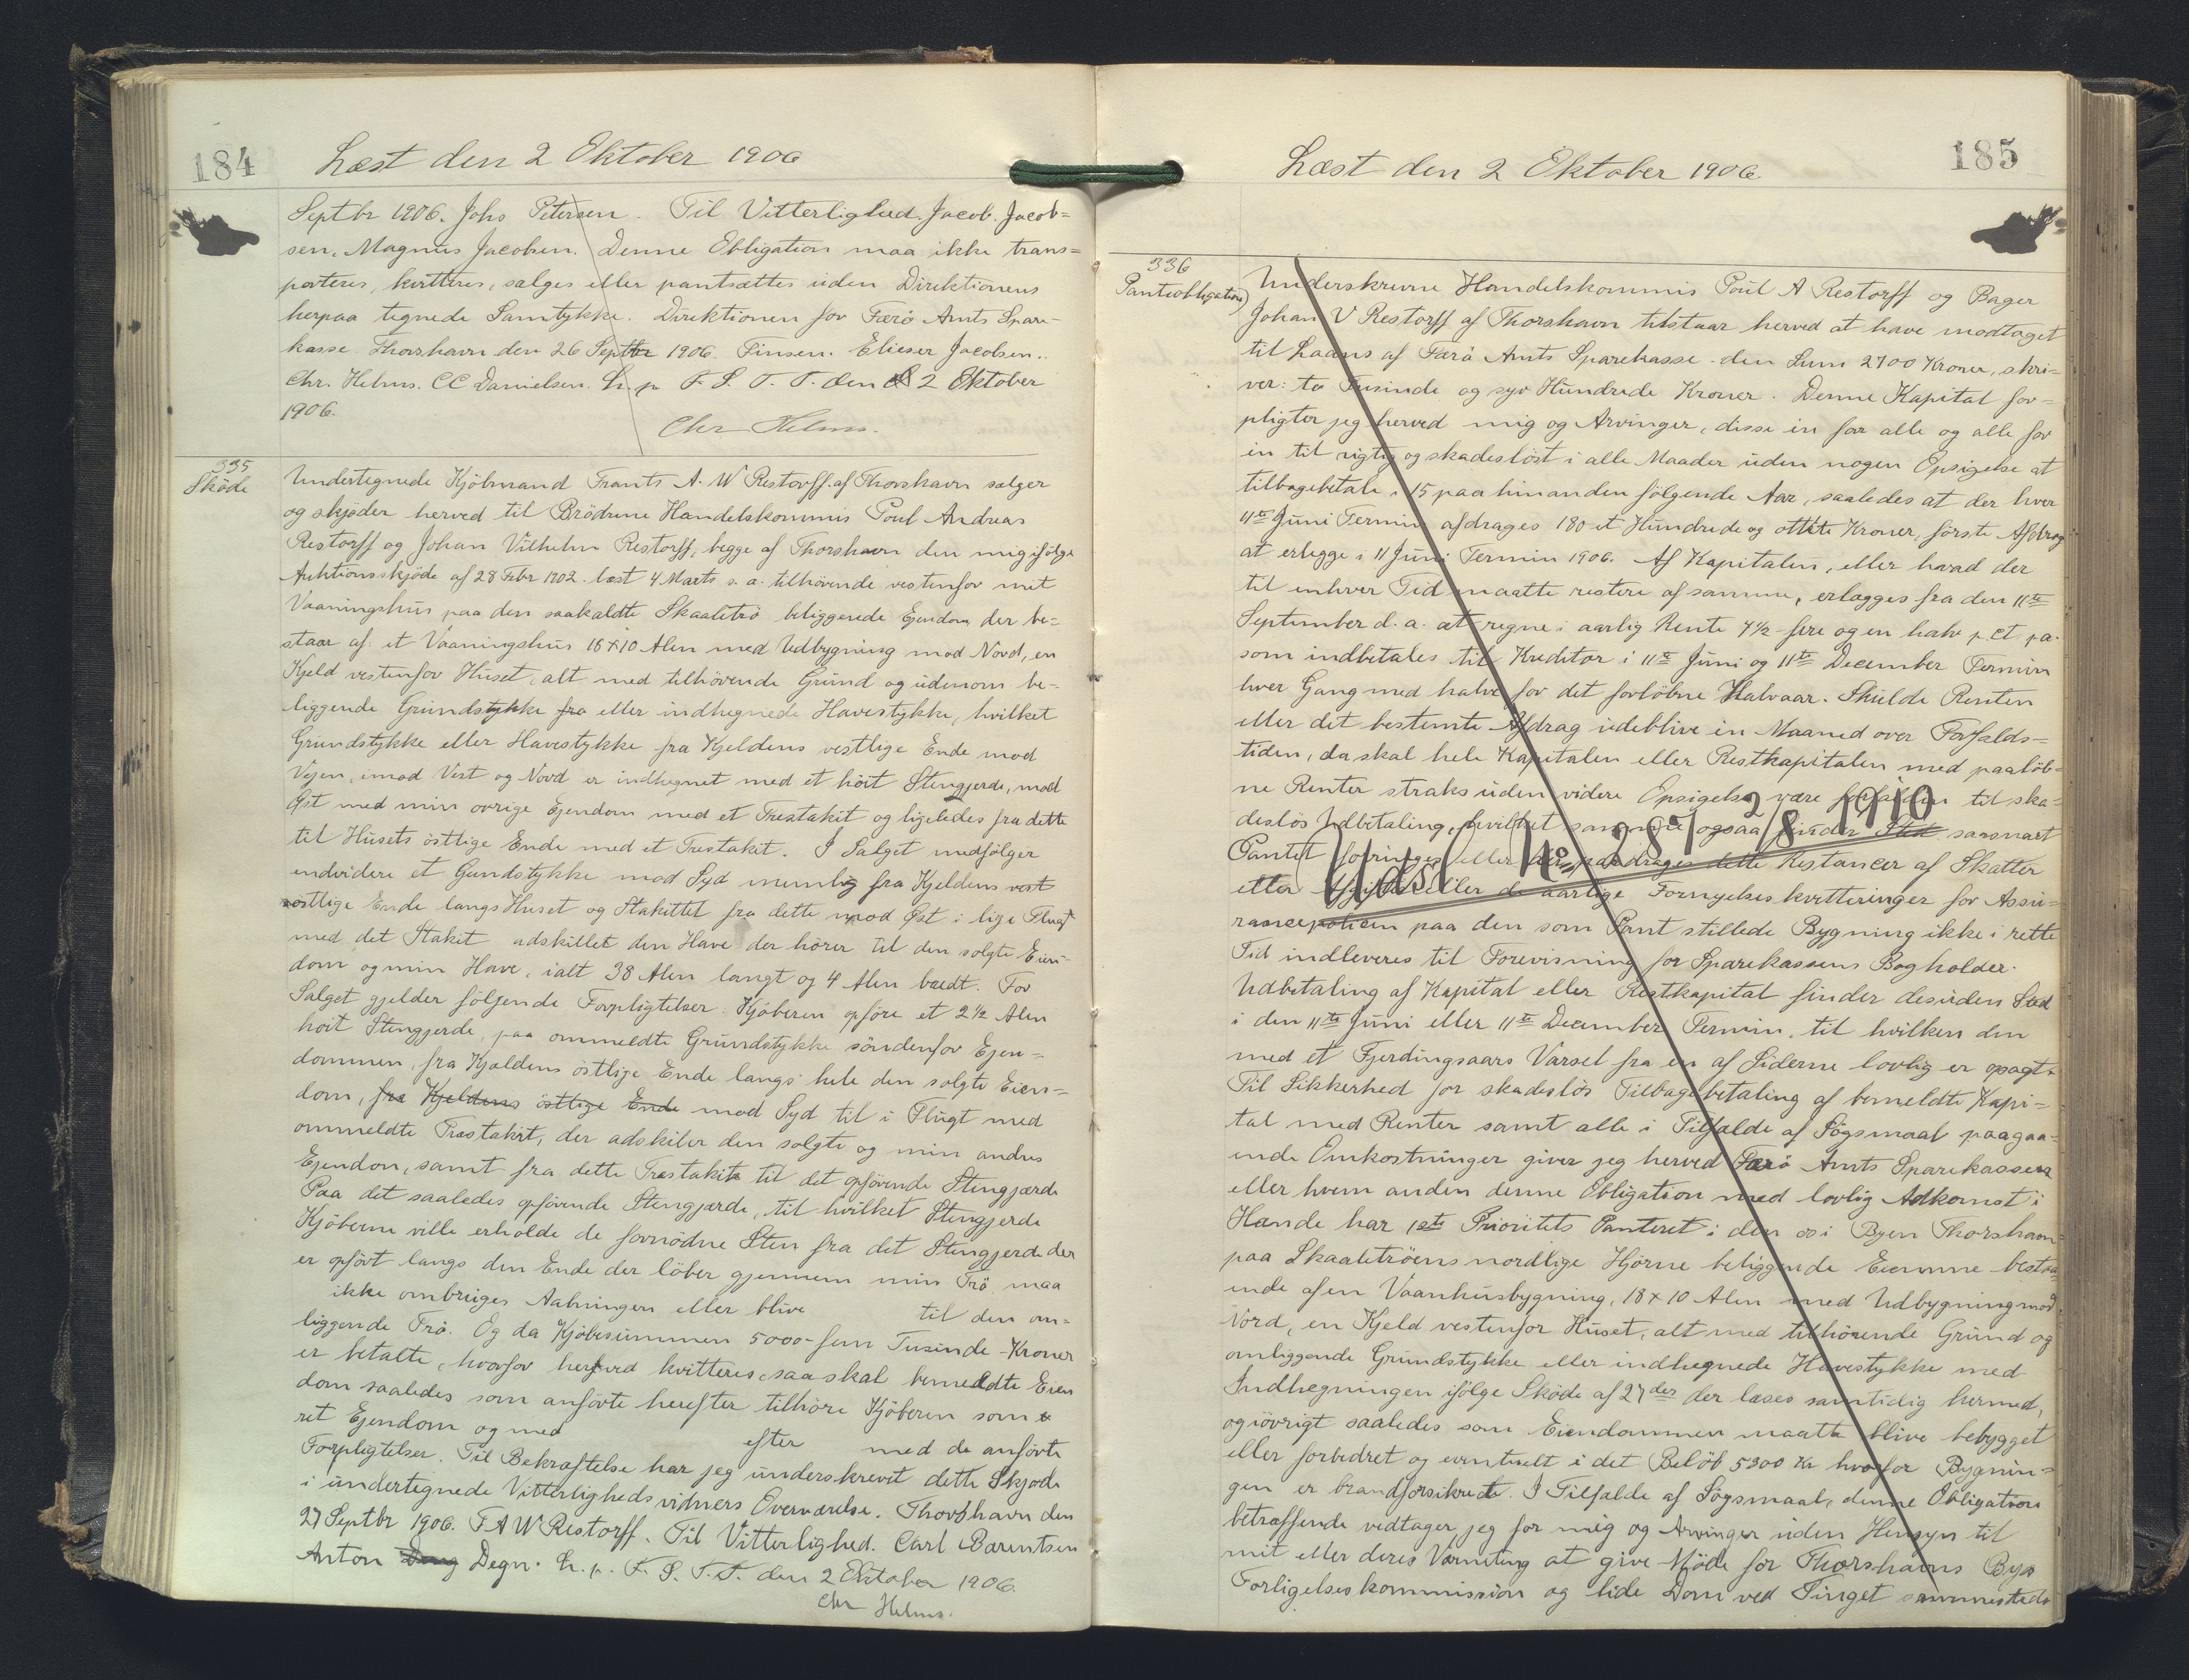 184
Læst den 2 Oktober 1906
Septbr 1906. Johs Petersen. Til Vitterlighed. Jacob. Jacob=
sen, Magnus Jacobsen. Denne Obligation maa ikke trans=
porteres, kvitteres, sælges eller pantsættes uden Direktionens
herpaa tegnede Samtykke. Direktionen for Færö Amts Spare-
kasse. Thorshavn den 26 Septbr 1906. Finsen. Elieser Jacobsen.
Chr. Helms. CC Danielsen. L. p F. S. T. T. den 2 Oktober
1906.
Chr Helms.
335
Sköde
Undertegnede Kjöbmand Frants A. W Restorff af Thorshavn sælger
og skjöder herved til Brödrene Handelskommis Poul Andreas
Restorff og Johan Vilhelm Restorff, begge af Thorshavn den mig ifölge
Auktionsskjöde af 28 Febr 1902. læst 4 Marts s. a. tilhörende vestenfor mit
Vaaningshus paa den saakaldte Skaaletrö beliggende Ejendom der be=
staar af et Vaaningshus 18 x 10 Alen med Udbygning mod Nord, en
Kjeld vestenfor Huset, alt med tilhörende Grund og udenom be-
liggende Grundstykke fra eller indhegnede Havestykke, hvilket
Grundstykke eller Havestykke fra Kjeldens vestlige Ende mod
Vejen, imod Vest og Nord er indhegnet med et höit Stengjerde, mod
Øst med min övrige Ejendom med et Trestakit og ligeledes fra dette
til Husets östlige Ende med et Trestakit. I Salget medfölger
endvidere et Gundstykke mod Syd nemlig fra Kjeldens vest
östlige Ende langs Huset og Stakittet fra dette mod Øst i lige Flugt
med det Stakit adskillet den Have der hörer til den solgte Eien-
dom og min Have, ialt 38 Alen langt og 4 Alen bredt. For
Salget gjelder fölgende Forpligtelser. Kjöberen opföre et 2½ Alen
höit Stengjerde, paa ommeldte Grundstykke söndenfor Ejen=
dommen, fra Kjeldens östlige Ende langs hele den solgte Eien=
dom, fra Kjeldens östlige Ende mod Syd til i Flugt med
ommeldte Træstakit, der adskiler den solgte og min anden
Ejendon, samt fra dette Træstakit til det opförende Stengjærde
Paa det saaledes opförende Stengjærde, til hvilket Stengjerde
Kjöberne ville erholde de fornödne Sten fra det Stengjerde der
er opfört langs den Ende der löber gjennem min Trö maa
ikke ombruges Aabningen eller blive til den om=
liggende Trö. Og da Kjöbesummen 5000- fem Tusinde - Kroner
er betalte, hvorfor herved kvitteres, saa skal bemeldte Eien
dom saaledes som anförte herefter tilhöre Kjöberen som
ret Ejendom og med efter med de anförte
Forpligtelser. Til Bekræftelse har jeg underskrevet dette Skjøde
i undertegnede Vitterlighedsvidners Overværelse. Thorshavn den
27 Septbr 1906. F A W Restorff. Til Vitterlighed. Carl Barentsen
Anton Degn. L. p. F. S. T. T. den 2 Oktober 1906.
Chr Helms.
185
Læst den 2 Oktober 1906.
336
Panteobligation)
Underskrevne Handelskommis Poul A Restorff og Bager
Johan V Restorff af Thorshavn tilstaar herved at have modtaget
til Laans af Færö Amts Sparekasse den Sum 2700 Kroner, skri=
ver: to Tusinde og syv Hundrede Kroner. Denne Kapital for=
pligter jeg herved mig og Arvinger, disse en for alle og alle for
en til rigtig og skadeslöst i alle Maader uden nogen Opsigelse at
tilbagebetale i 15 paa hinanden fölgende Aar, saaledes at der hver
11te Juni Termin afdrages 180 et Hundrede og ottite Kroner, förste Afdrag
at erlegge i 11 Juni Termin 1906. Af Kapitalen, eller hvad der
til enhver Tid maatte restere af samme, erlægges fra den 11te
September d. a. at regne i aarlig Rente 4½ fire og en halv p. ct p. a.
som indbetales til Kreditor i 11te Juni og 11te December Termin
hver Gang med halve for det forlöbne Halvaar. Skulde Renten
eller det bestemte Afdrag udeblive en Maaned over Forfalds=
tiden, da skal hele Kapitalen eller Restkapitalen med paalöb=
ne Renter straks uden videre Opsigelse være forfalden til ska=
deslös Udbetaling, hvilket samme ogsaa finder Sted saasnart
Pantet forringes eller derpaa drages dette Restancer af Skatter
eller Afgifter eller de aarlige Fornyelseskvitteringer for Assu=
rancepolicen paa den som Pant stillede Bygning ikke i rette
Tid indleveres til Forevisning for Sparekassens Bogholder.
Udbetaling af Kapital eller Restkapital finder desuden Sted
i den 11te Juni eller 11te December Termin, til hvilken den
med et Fjerdingsaars Varsel fra en af Siderne lovlig er opsagt.
Til Sikkerhed for skadeslös Tilbagebetaling af bemeldte Kapi=
tal med Renter samt alle i Tilfælde af Sögsmaal paagaa=
ende Omkostninger giver jeg herved Færö Amts Sparekassen
eller hvem anden denne Obligation med lovlig Adkomst i
Hænde har 1ste Prioritets Panteret i den os i Byen Thorshavn
paa Skaaletröens nordlige Hjörne beliggende Eiemme bestaa=
ende af en Vaanhusbygning, 18 x 10 Alen med Udbygning mod
Nord, en Kjeld vestenfor Huset, alt med tilhörende Grund og
omliggende Grundstykke eller indhegnede Havestykke med
Indhegningen ifölge Sköde af 27 ds der læses samtidig hermed,
og iövrigt saaledes som Eiendommen maatte blive bebygget
eller forbedret og eventuelt i det Belöb 5300 Kr hvorfor Bygnin=
gen er brandforsikrede. I Tilfælde af Sögsmaal, denne Obligation
betræffende vedtager jeg for mig og Arvinger uden Hensyn til
mit eller deres Værneting at give Möde for Thorshavns Byes
Forligelseskommission og lide Dom ved Tinget sammesteds
Udsl No 287 2/8 1910